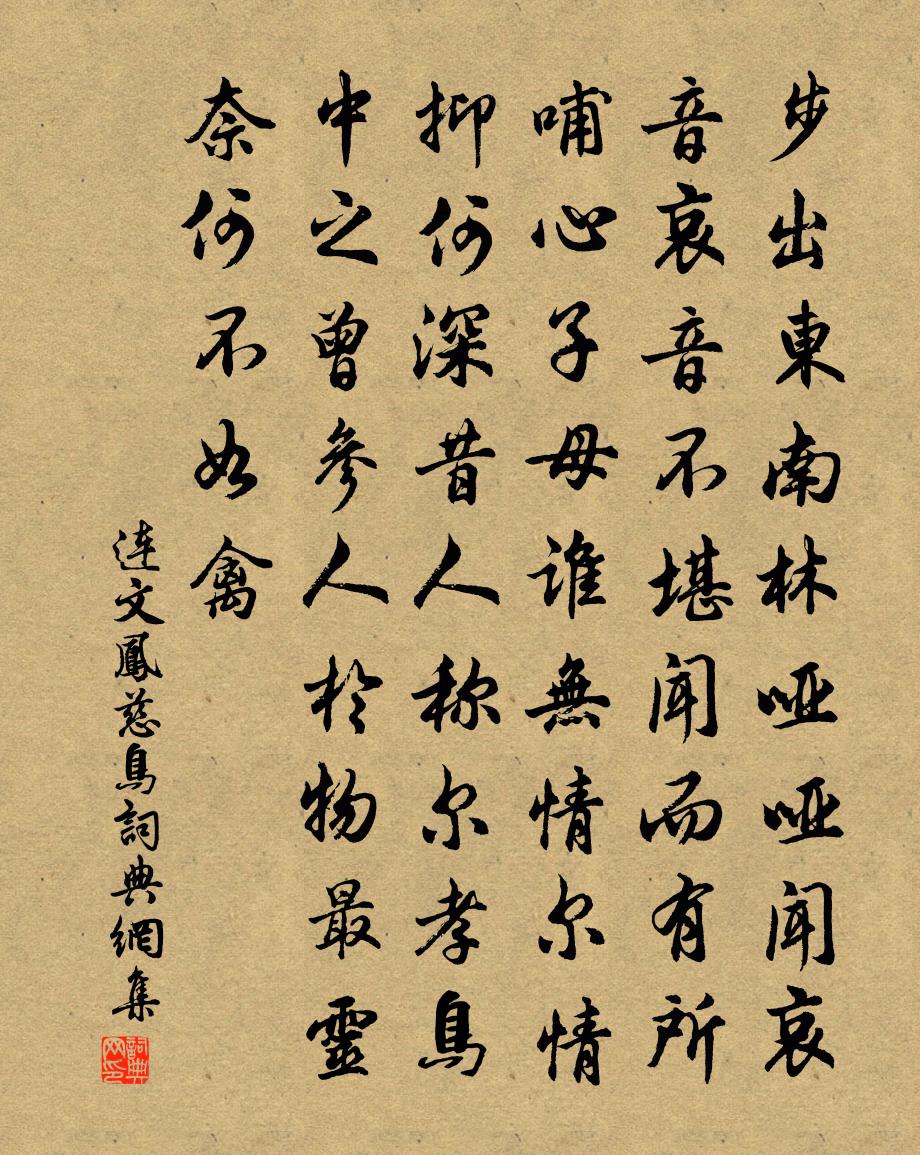 步出東南林哑哑闻哀
音哀音不堪闻而有所
哺心子母谁無情尔情
抑何深昔人称尔孝鳥
中之曾參人於物最靈
奈何不如禽
连文鳳慈鳥詞典網集
詞典
网印